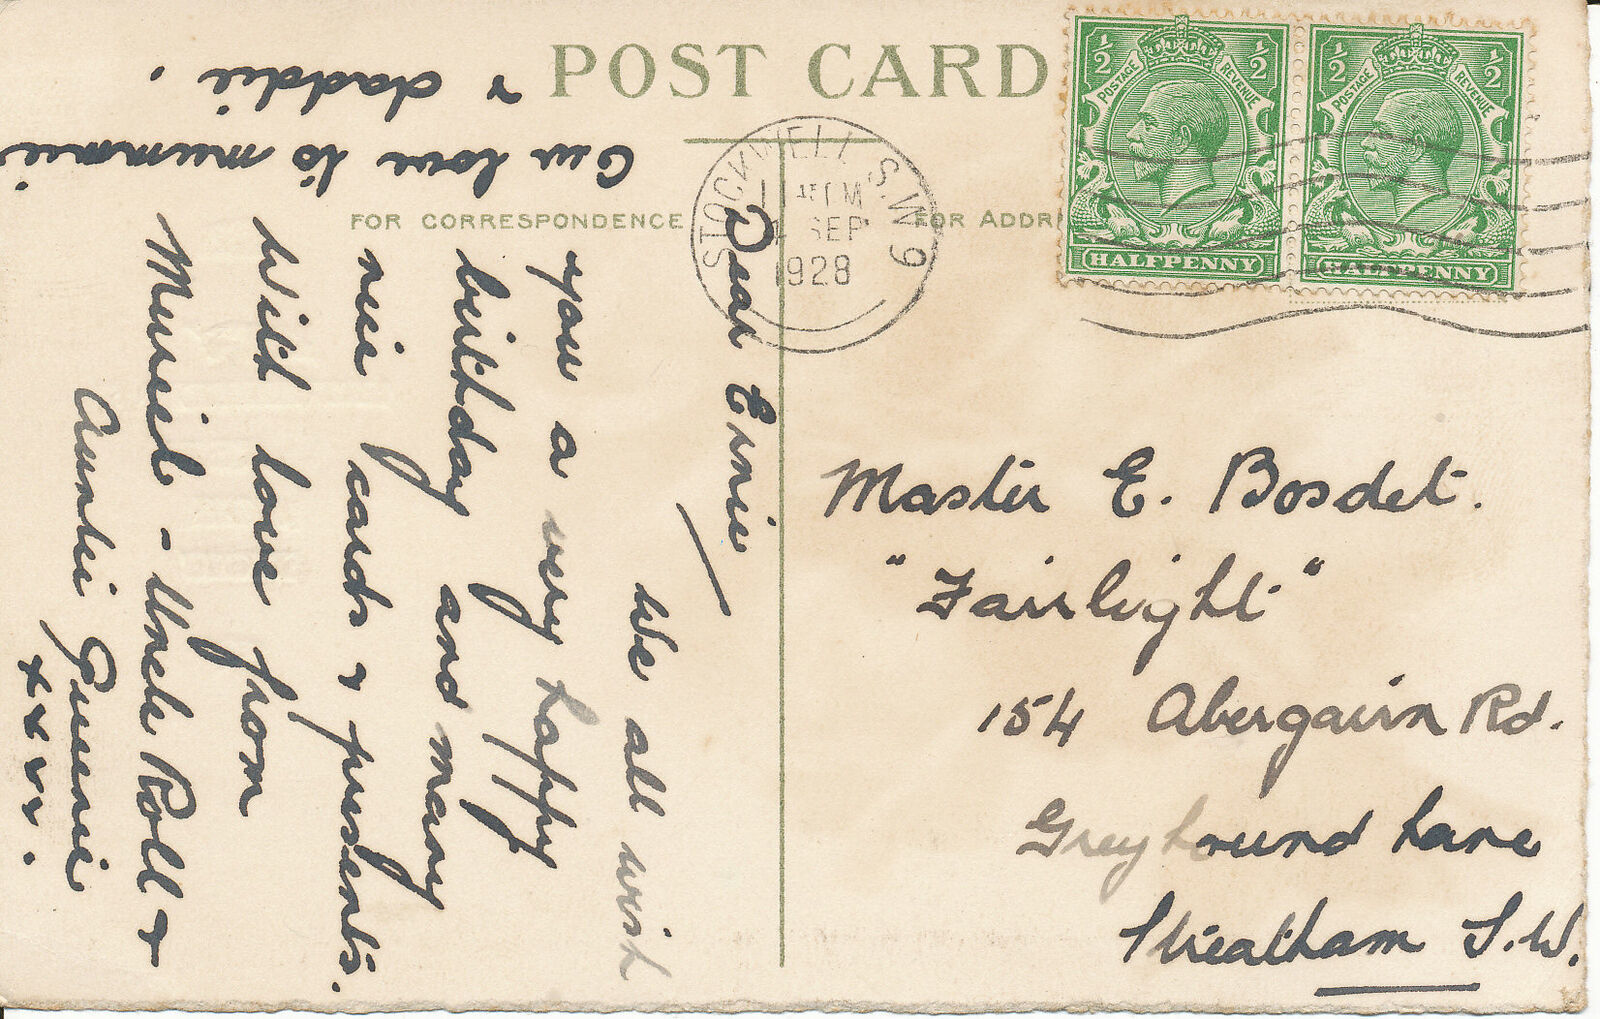 POST CARD
FOR CORRESPONDENCE
FOR ADDR
STOCKWELL S.W.9
SEP
1928
1/2 1/2
POSTAGE REVENUE
HALFPENNY
1/2 1/2
POSTAGE REVENUE
HALFPENNY
Dear Ernie
We all wish
you a very happy
birthday and many
nice cards & presents.
With love from
Muriel - Uncle Roll &
Auntie Queenie
x x x x x .
Our love to mummie
& daddie.
Master E. Bosdet.
"Fairlight"
154 Abergairn Rd.
Greyhound Lane
Streatham S.W.